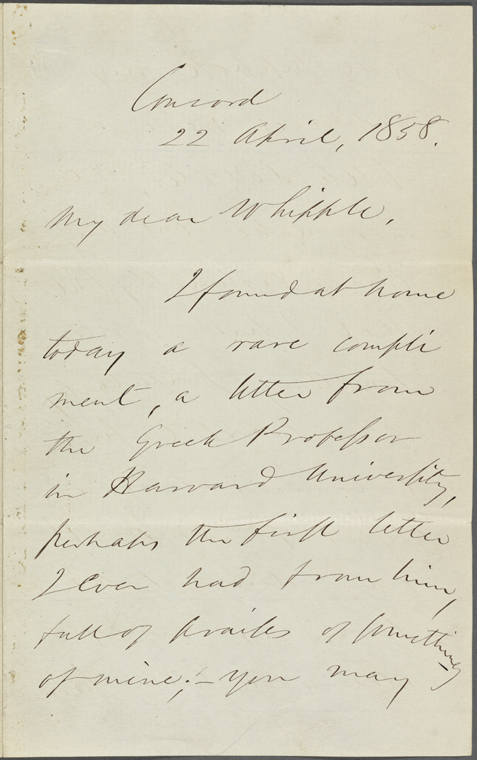 Concord
22 April, 1858.
My dear Whipple,
I found at home
today a rare compli
ment, a letter from
the Greek Professor
in Harvard University,
perhaps the first letter
I ever had from him,
full of praises of something
of mine; – you may